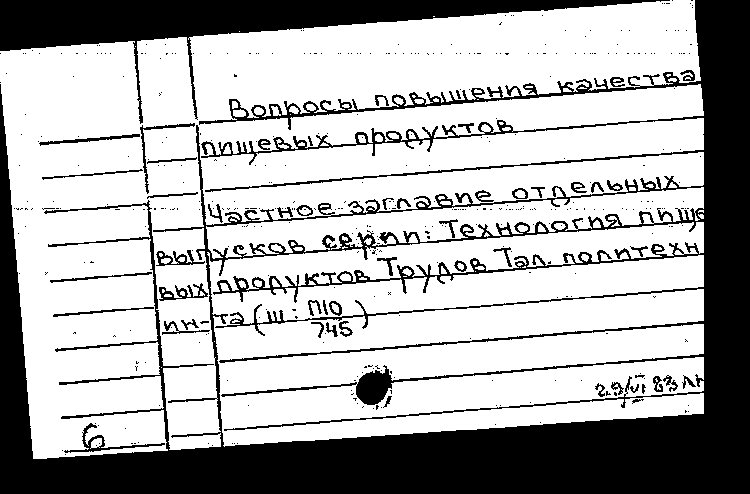 Вопросы повышения качества
пищевых продуктов
Частное заглавие отдельных
выпусков серии: Технология пище
вых продуктов Трудов Тал. политехн
ин-та (Ш: П10
745)
29/VI 83
6